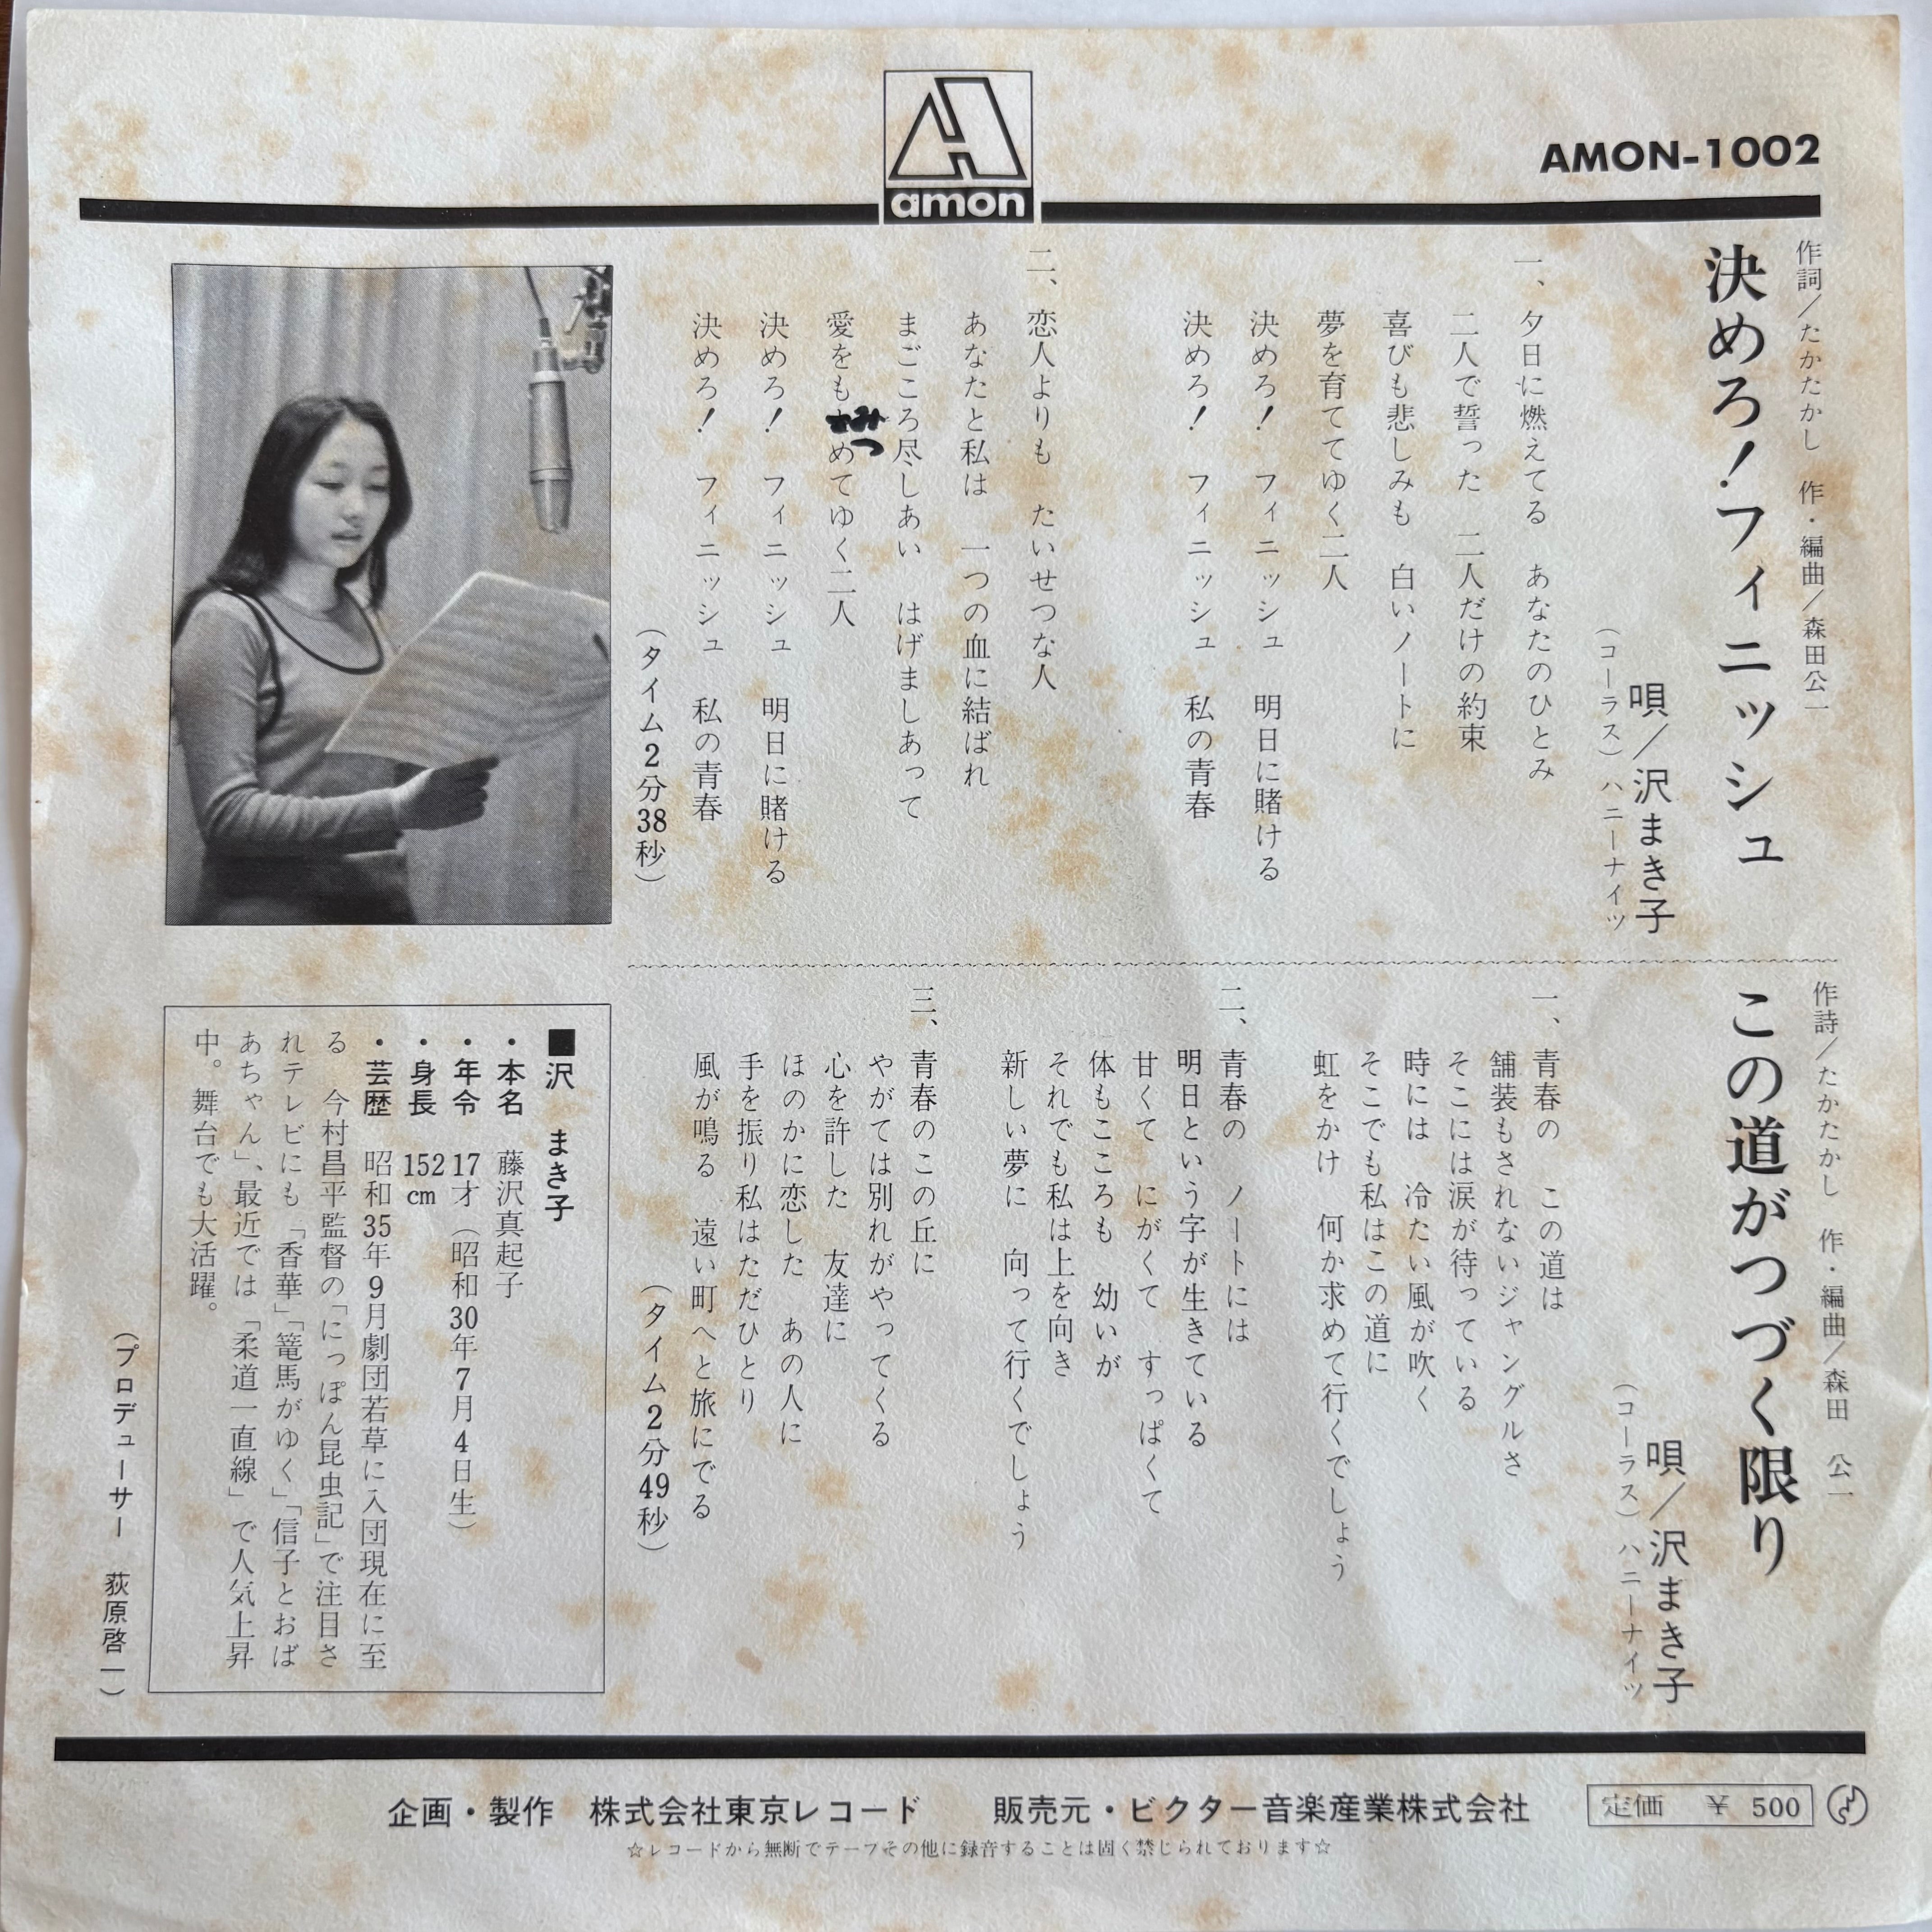 AMON-1002
amon
作詞／たかたかし 作・編曲／森田公一
決めろ！フィニッシュ
唄／沢まき子
（コーラス）ハニーナイツ
一、夕日に燃えてる あなたのひとみ
二人で誓った 二人だけの約束
喜びも悲しみも 白いノートに
夢を育ててゆく二人
決めろ！ フィニッシュ 明日に賭ける
決めろ！ フィニッシュ 私の青春
二、恋人よりも たいせつな人
あなたと私は 一つの血に結ばれ
まごころ尽しあい はげましあって
愛をみつめてゆく二人
決めろ！ フィニッシュ 明日に賭ける
決めろ！ フィニッシュ 私の青春
（タイム2分38秒）
作詩／たかたかし 作・編曲／森田 公一
この道がつづく限り
唄／沢まき子
（コーラス）ハニーナイツ
一、青春の この道は
舗装もされないジャングルさ
そこには涙が待っている
時には 冷たい風が吹く
そこでも私はこの道に
虹をかけ 何か求めて行くでしょう
二、青春の ノートには
明日という字が生きている
甘くて にがくて すっぱくて
体もこころも 幼いが
それでも私は上を向き
新しい夢に 向って行くでしょう
三、青春のこの丘に
やがては別れがやってくる
心を許した 友達に
ほのかに恋した あの人に
手を振り私はただひとり
風が鳴る 遠い町へと旅にでる
（タイム2分49秒）
■沢 まき子
・本名 藤沢真起子
・年令 17才（昭和30年7月4日生）
・身長 152cm
・芸歴 昭和35年9月劇団若草に入団現在に至
る 今村昌平監督の「にっぽん昆虫記」で注目さ
れテレビにも「香華」「篭馬がゆく」「信子とおば
あちゃん」、最近では「柔道一直線」で人気上昇
中。舞台でも大活躍。
（プロデューサー 荻原啓一）
企画・製作 株式会社東京レコード 販売元・ビクター音楽産業株式会社
定価 ￥500
☆レコードから無断でテープその他に録音することは固く禁じられております☆